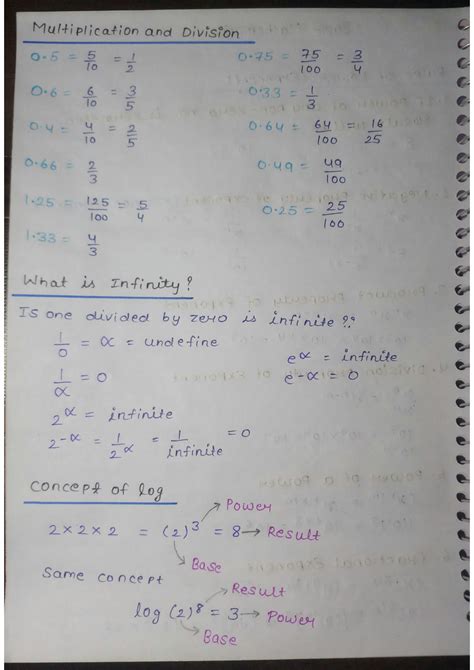 Multiplication and Division
0.5 = 5/10 = 1/2
0.75 = 75/100 = 3/4
0.6 = 6/10 = 3/5
0.33 = 1/3
0.4 = 4/10 = 2/5
0.64 = 64/100 = 16/25
0.66 = 2/3
0.49 = 49/100
1.25 = 125/100 = 5/4
0.25 = 25/100
1.33 = 4/3
What is Infinity?
Is one divided by zero is infinite ??
1/0 = ∝ = undefine
e^∝ = infinite
1/∝ = 0
e^-∝ = 0
2^∝ = infinite
2^-∝ = 1/2^∝ = 1/infinite = 0
Concept of log
Power
2 × 2 × 2 = (2)^3 = 8 → Result
Base
Same concept
Result
log (2)^8 = 3 → Power
Base